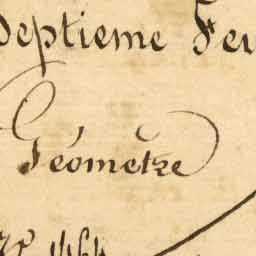 Septieme Feu
Géometre